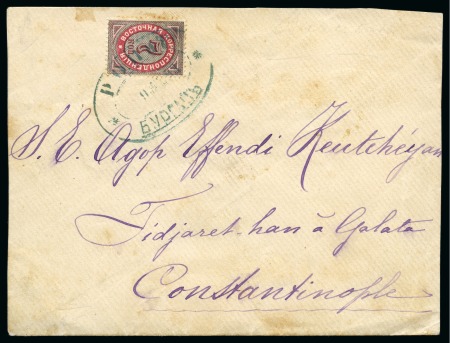 ВОСТОЧНАЯ КОРРЕСПОНДЕНЦІЯ
БУРГАСЪ
S. E. Agop Effendi Keutchéyan
Tidjaret-han à Galata
Constantinople